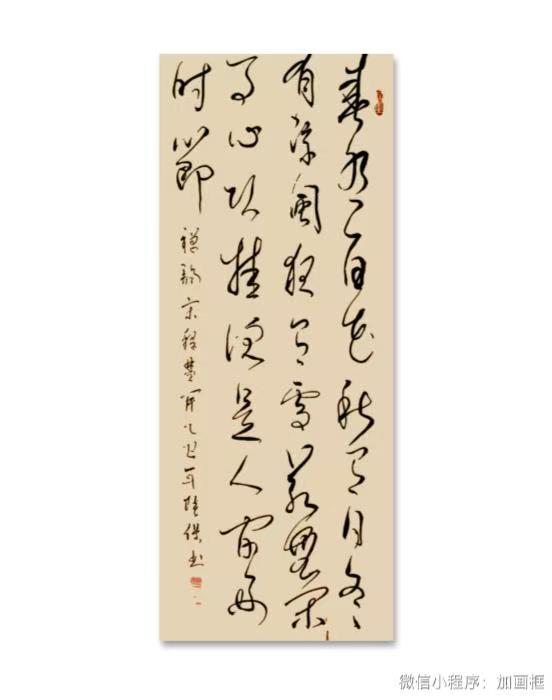 春有百花秋有月夏
有凉風有雪若無闲
事心头挂便是人间好
时節
禅詩宋释慧開乙巳年书
微信小程序：加画框